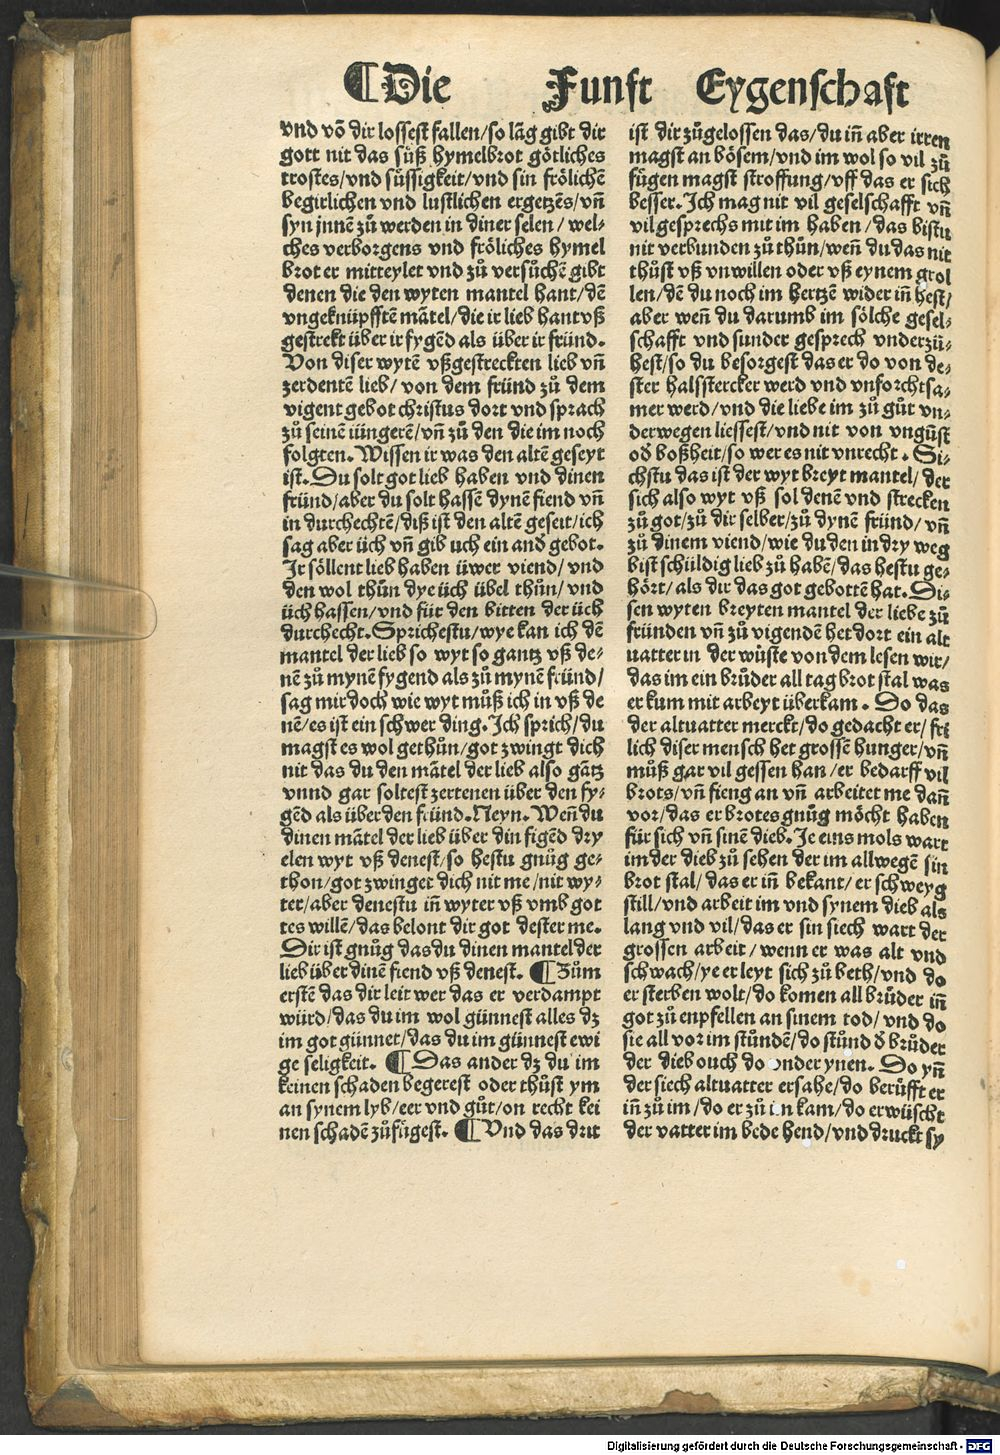 ¶Die Funft Eygenschaft
vnd võ dir lossest fallen/so lãg gibt dir
gott nit das süß hymelbrot götliches
trostes/vnd süssigkeit/vnd sin frölichẽ
begirlichen vnd lustlichen ergetzẽs/vñ
syn jnnẽ zů werden in diner selen/ wel⸗
ches verborgens vnd fröliches hymel
brot er mitteylet vnd zů versůchẽ gibt
denen die den wyten mantel hant/dẽ
vngeknüpfftẽ mãtel/die ir lieb hant vß
gestrekt über ir fygẽd als über ir fründ.
Von diser wytẽ vßgestreckten lieb vñ
zerdentẽ lieb/ von dem fründ zů dem
vigent gebot christus dort vnd sprach
zů seinẽ iüngerẽ/vñ zů den die im noch
folgten. Wissen ir was den altẽ geseyt
ist. Du solt got lieb haben vnd dinen
fründ/aber du solt hassẽ dynẽ fiend vñ
in durchechtẽ/diß ist den altẽ geseit/ich
sag aber üch vñ gib uch ein and̃ gebot.
Ir söllent lieb haben üwer viend/ vnd
den wol thůn dye üch übel thůn/ vnd
üch hassen/vnd für den bitten der üch
durchecht. Sprichestu/wye kan ich dẽ
mantel der lieb so wyt so gantz vß de⸗
nẽ zů mynẽ fygend als zů mynẽ fründ/
sag mir doch wie wyt můß ich in vß de
nẽ/es ist ein schwer ding. Ich sprich/du
magst es wol gethůn/got zwingt dich
nit das du den mãtel der lieb also gãtz
vnnd gar soltest zertenen über den fy⸗
gẽd als über den fründ. Neyn. Weñ du
dinen mãtel der lieb über din figẽd dry
elen wyt vß denest/so hestu gnůg ge⸗
thon/got zwinget dich nit me/nit wy⸗
ter/aber denestu iñ wyter vß vmb got
tes willẽ/das belont dir got dester me.
Dir ist gnůg das du dinen mantel der
lieb über dinẽ fiend vß denest. ¶Zům
erstẽ das dir leit wer das er verdampt
würd/das du im wol günnest alles dz
im got günnet/das du im günnest ewi
ge seligkeit. ¶Das ander dz du im
keinen schaden begerest oder thůst ym
an synem lyb/eer vnd gůt/on recht kei
nen schadẽ zůfügest. ¶Vnd das drit
ist dir zůgelossen das/du iñ aber irren
magst an bösem/vnd im wol so vil zů
fügen magst stroffung/vff das er sich
besser. Ich mag nit vil geselschafft vñ
vil gesprechs mit im haben/das bistu
nit verbunden zů thůn/weñ du das nit
thůst vß vnwillen oder vß eynem grol
len/dẽ du noch im hertzẽ wider iñ hest/
aber weñ du darumb im sölche gesel⸗
schafft vnd sunder gesprech vnderzü⸗
hest/so du besorgest das er do von de⸗
ster halssstercker werd vnd vnforchtsa⸗
mer werd/vnd die liebe im zů gůt vn⸗
derwegen liessest/vnd nit von vngũst
od̃ boßheit/so wer es nit vnrecht. Si⸗
chstu das ist der wyt breyt mantel/ der
sich also wyt vß sol denẽ vnd strecken
zů got/zů dir selber/zů dynẽ fründ/ vñ
zů dinem viend/wie du den in dry weg
bist schüldig lieb zů habẽ/das hestu ge⸗
hört/als dir das got gebottẽ hat. Di⸗
sen wyten breyten mantel der liebe zů
fründen vñ zů vigendẽ het dort ein alt
uatter in der wüste von dem lesen wir/
das im ein brůder all tag brot stal was
er kum mit arbeyt überkam. Do das
der altuatter merckt/do gedacht er/ frö
lich diser mensch het grossẽ hunger/vñ
můß gar vil gessen han/er bedarff vil
brots/vñ fieng an vñ arbeitet me dañ
vor/das er brotes gnůg möcht haben
für sich vñ sinẽ dieb. Je eins mols wart
im der dieb zů sehen der im allwegẽ sin
brot stal/das er iñ bekant/er schweyg
still/vnd arbeit im vnd synem dieb als
lang vnd vil/das er sin siech wart der
grossen arbeit/wenn er was alt vnd
schwach/ye er leyt sich zů beth/vnd do
er sterben wolt/do komen all brůder iñ
got zů enpfellen an sinem tod/vnd do
sie all vor im stůndẽ/do stůnd d̃ brůder
der dieb ouch do vnder ynen. Do yñ
der siech altuatter ersahe/do berüfft er
iñ zů im/do er zů im kam/do erwüscht
der vatter im bede hend/vnd druckt sy
Digitalisierung gefördert durch die Deutsche Forschungsgemeinschaft - DFG